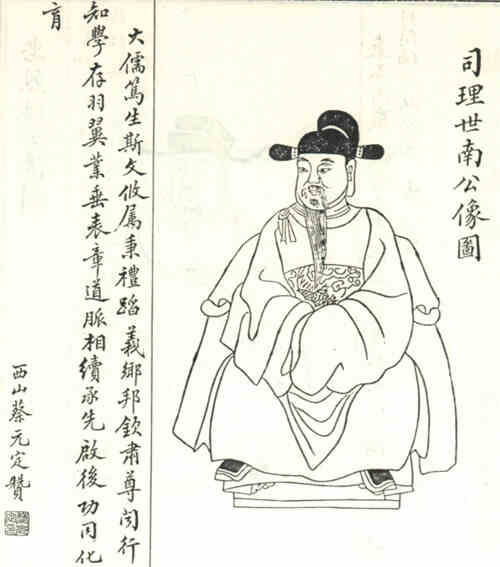 司理世南公像圖
大儒篤生斯文攸屬秉禮蹈義鄉邦欽肅尊聞行
知學存羽翼業垂表章道脈相續承先啟後功同化
育
西山蔡元定贊